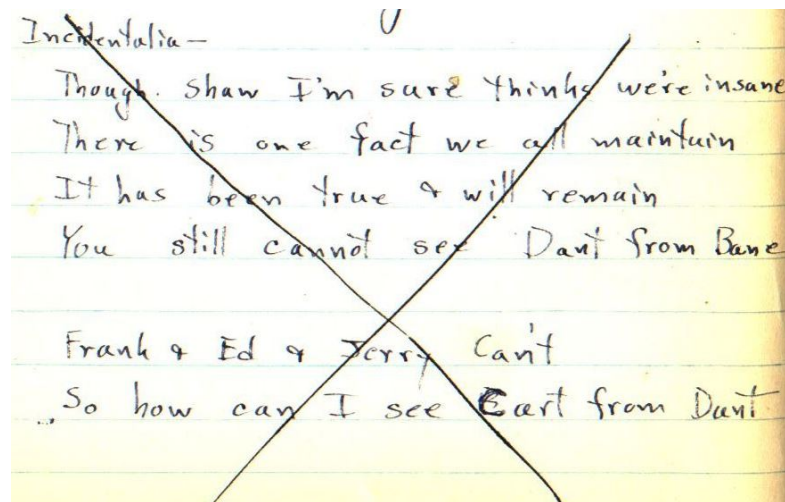 Incidentalia —
Though Shaw I'm sure thinks we're insane
There is one fact we all maintain
It has been true & will remain
You still cannot see Dant from Bane
Frank & Ed & Jerry Can't
So how can I see from Dant